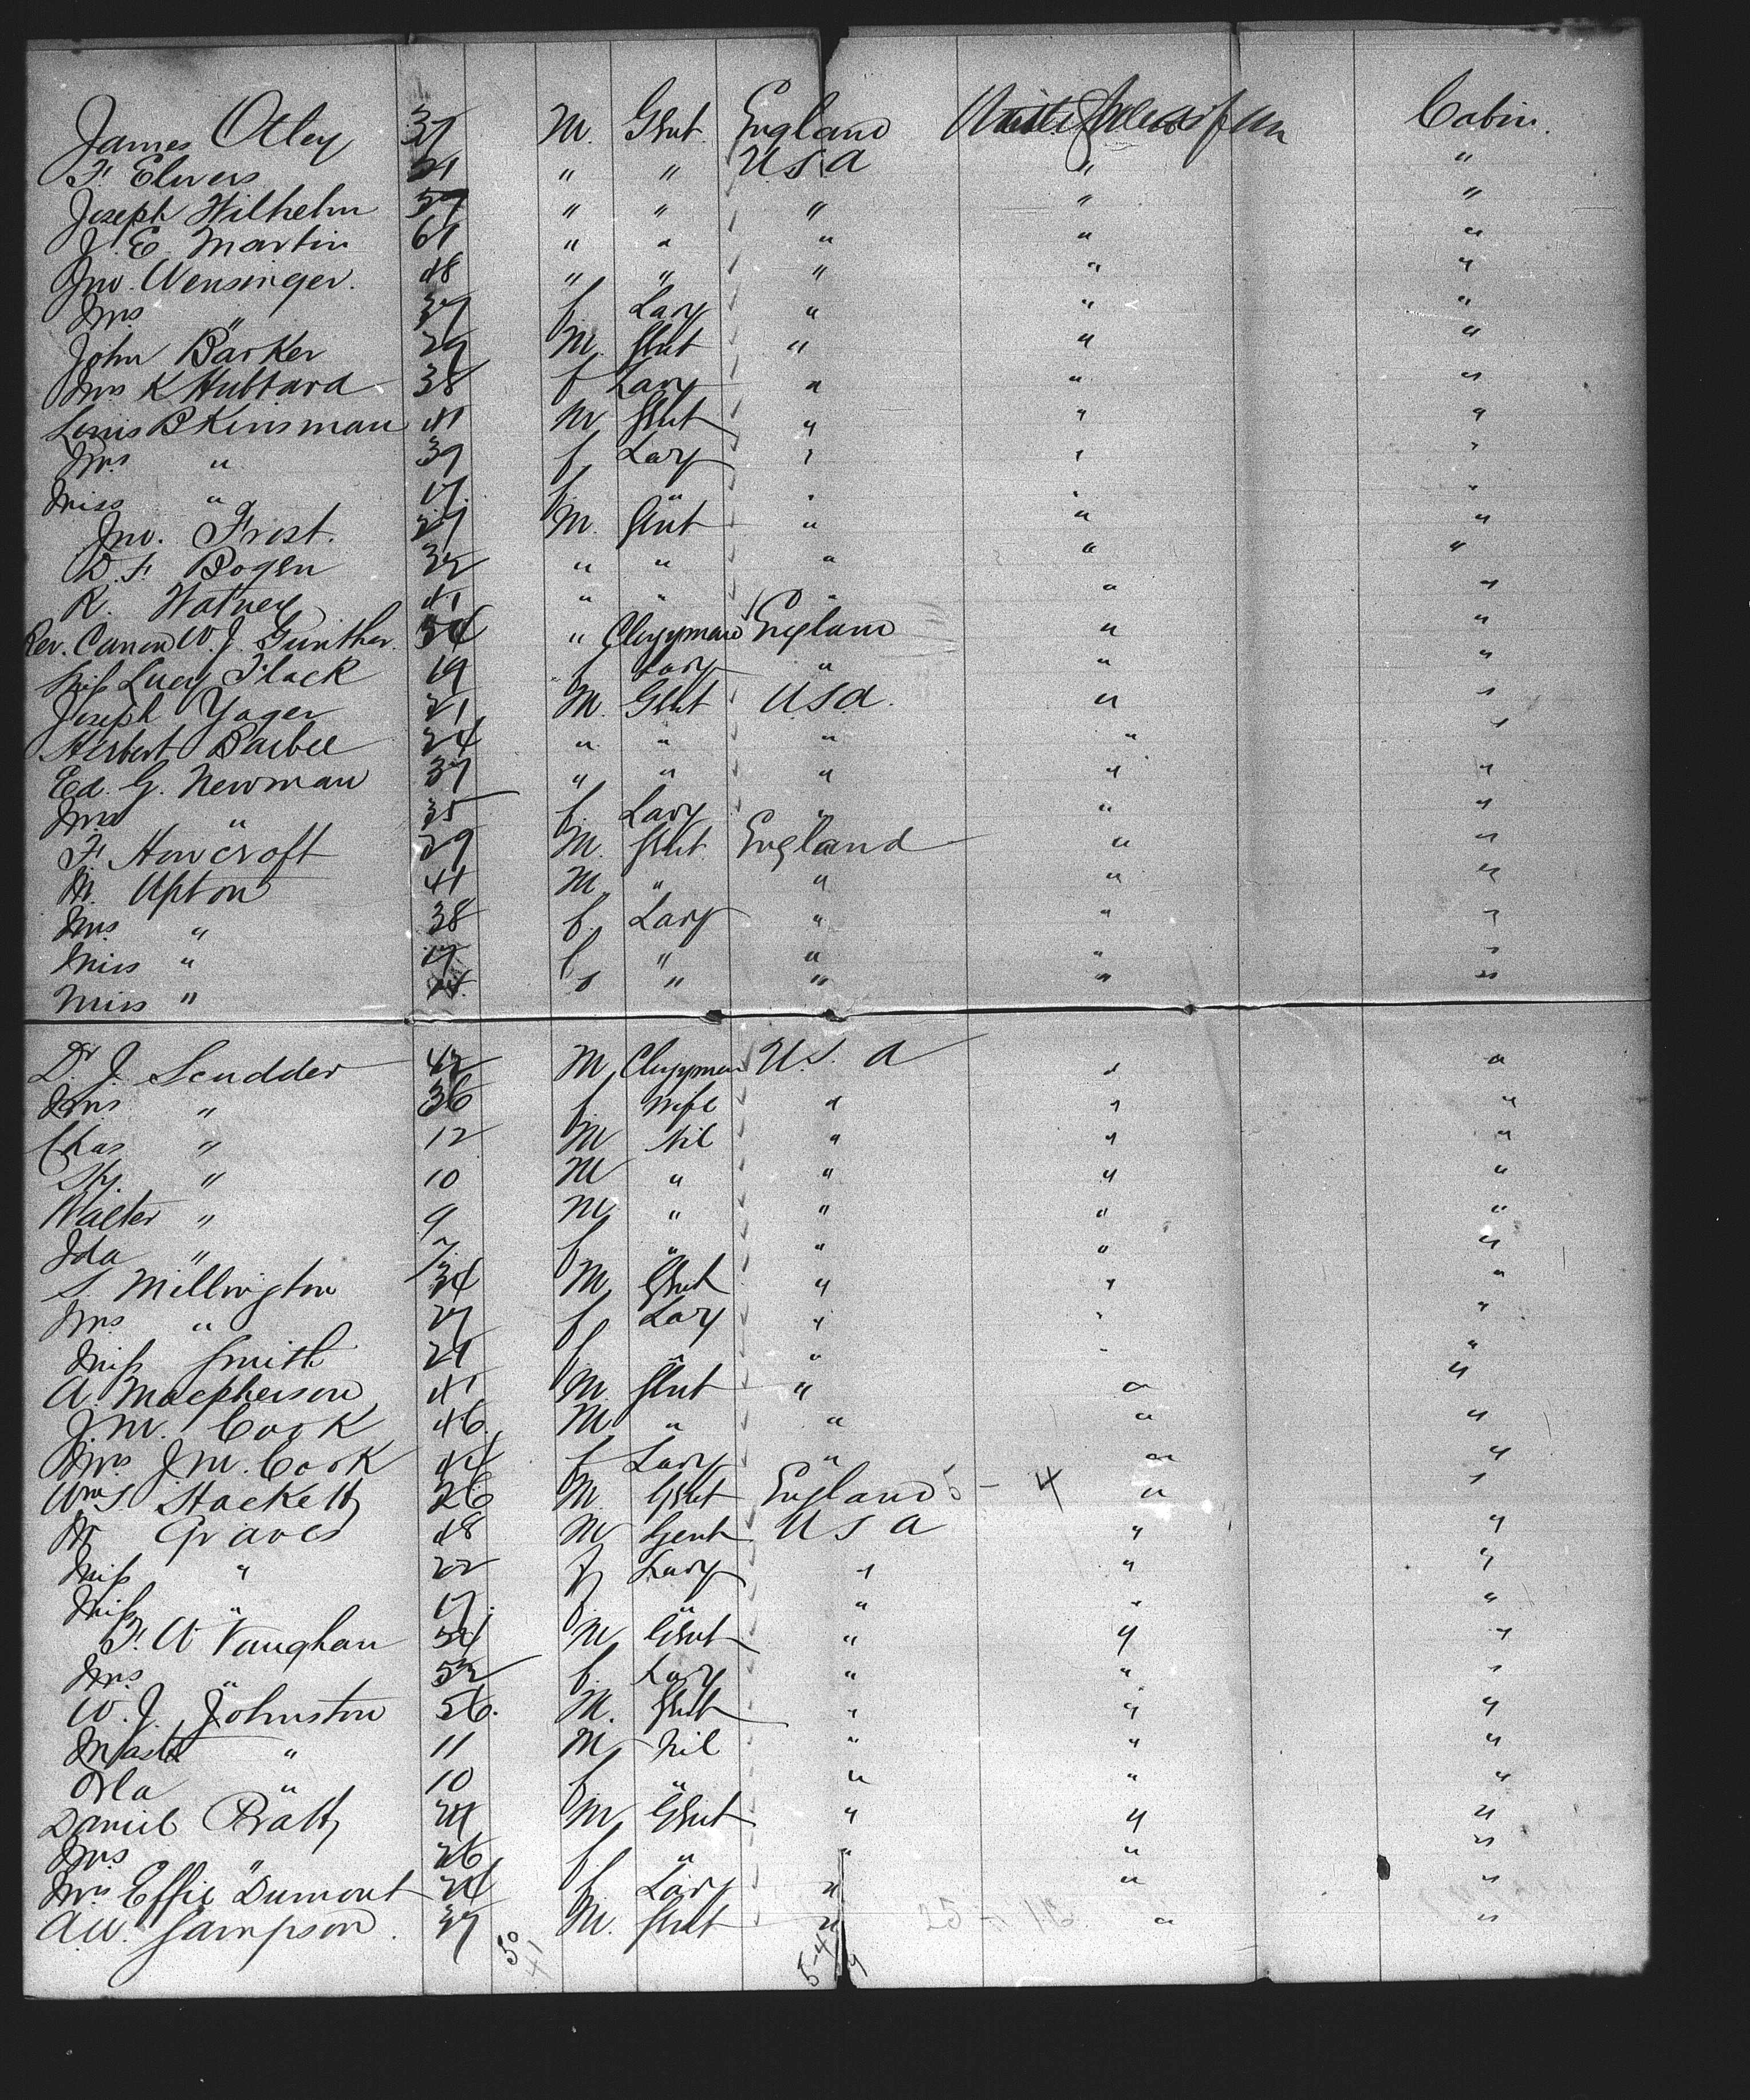 James Otley 37 M. Gent. England Cabin.
F. Elvers 21 " " U.S.A " "
Joseph Wilhelm 57 " " " " "
J. E. Martin 61 " " " " "
Jno. Wensinger. 48 " " " " "
Mrs " 37 f Lady " " "
John Barker 29 M. Gent " " "
Mrs K Hubbard 38 f Lady " " "
Louis B Kinsman 41 M Gent " " "
Mrs " 39 f. Lady " " "
Miss " 17. f. " " " "
Jno. Frost. 27 M. Gent " " "
D. F. Bogen 32 " " " " "
R. Watney 41 " " " " "
Rev. Canon W. J. Gunther. 54 " Clergyman England " "
Miss Lucy Flack 19 f Lady " " "
Joseph Yager 21 M. Gent U.S.A. " "
Herbert Barbee 24 " " " " "
Ed. G. Newman 37 " " " " "
Mrs " 35 f. Lady " " "
F. Howcroft 29 M. Gent England " "
M. Upton 41 M. " " " "
Mrs. " 38 f. Lady " " "
Miss " 17 f " " " "
Miss " f " " " "
Dr J. Scudder 42 M. Clergyman U.S.A " "
Mrs " 36 f. Wife " " "
Chas " 12 M Nil " " "
" 10 M " " " "
Walter " 9 M " " " "
Ida " 7. f " " " "
S. Millington 34 M. Gent " " "
Mrs " 27 f Lady " " "
Miss Smith 21 f " " " "
A. Macpherson 41 M. Gent " " "
J. M. Cook 46. M " " " "
Mrs. J M. Cook 44 f Lady " " "
Wm S Hackett 26 M. Gent England 5 - 4 " "
Graves 48 M Gent U S A " "
Miss " 22 f Lady " " "
Miss " 17. f. " " " "
F. W Vaughan 54 M Gent " " "
Mrs. " 52 f. Lady " " "
W. J. Johnston 56. M. Gent " " "
Mast " 11 M. Nil " " "
Orla " 10 f " " " "
Daniel Pratt M Gent " " "
Mrs " 26 f. " " " "
Mrs Effie Dumont 24 f Lady " " "
A.W. Sampson. 37 M. Gent " " "
50
41
5-4